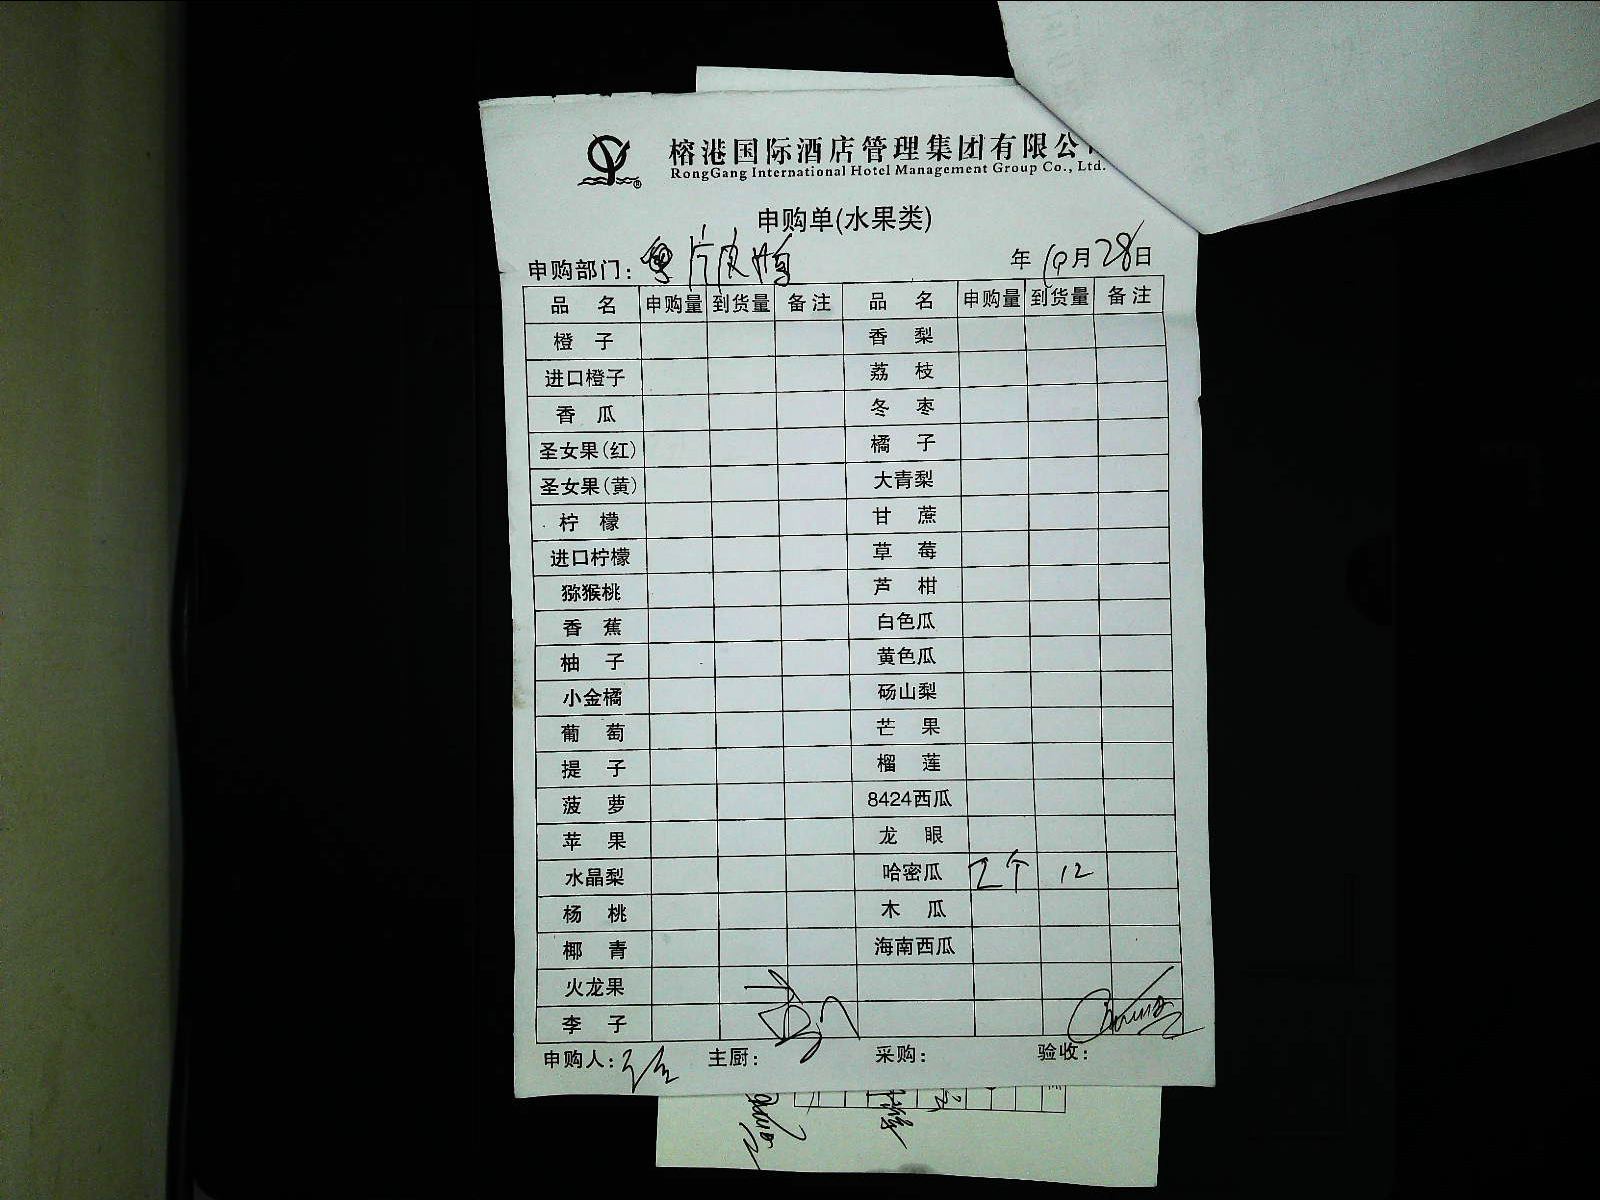 榕港国际酒店管理集团有限公
RongGang International Hotel Management Group Co., Ltd.
申购单(水果类)
申购部门: 年 10月28日
品 名 申购量 到货量 备注 品 名 申购量 到货量 备注
橙 子 香 梨
进口橙子 荔 枝
香 瓜 冬 枣
圣女果(红) 橘 子
圣女果(黄) 大青梨
柠 檬 甘 蔗
进口柠檬 草 莓
猕猴桃 芦 柑
香 蕉 白色瓜
柚 子 黄色瓜
小金橘 砀山梨
葡 萄 芒 果
提 子 榴 莲
菠 萝 8424西瓜
苹 果 龙 眼
水晶梨 哈密瓜 2个 12
杨 桃 木 瓜
椰 青 海南西瓜
火龙果
李 子
申购人: 主厨: 采购: 验收: